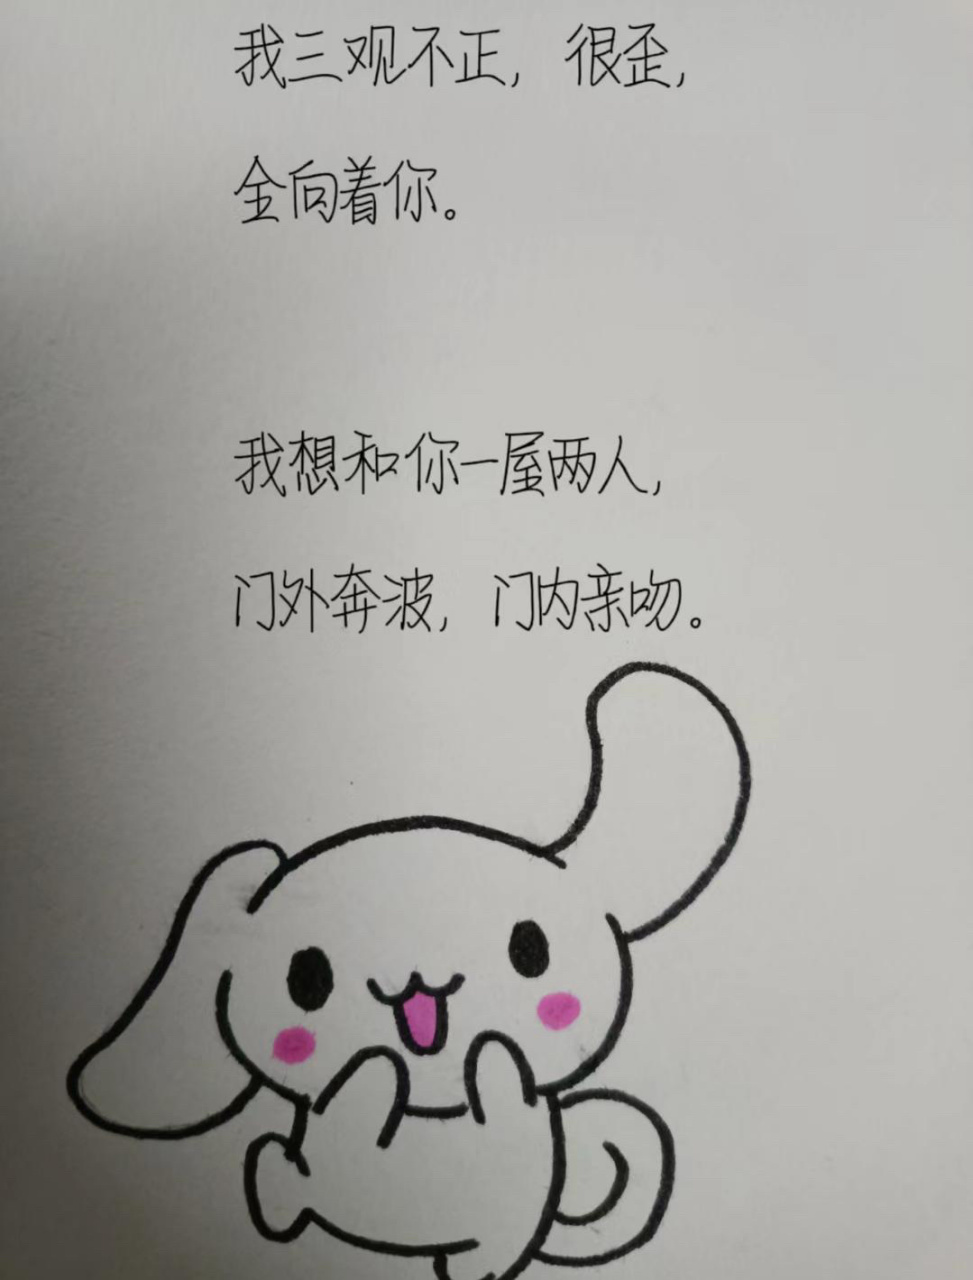 我三观不正，很歪，
全向着你。
我想和你一屋两人，
门外奔波，门内亲吻。